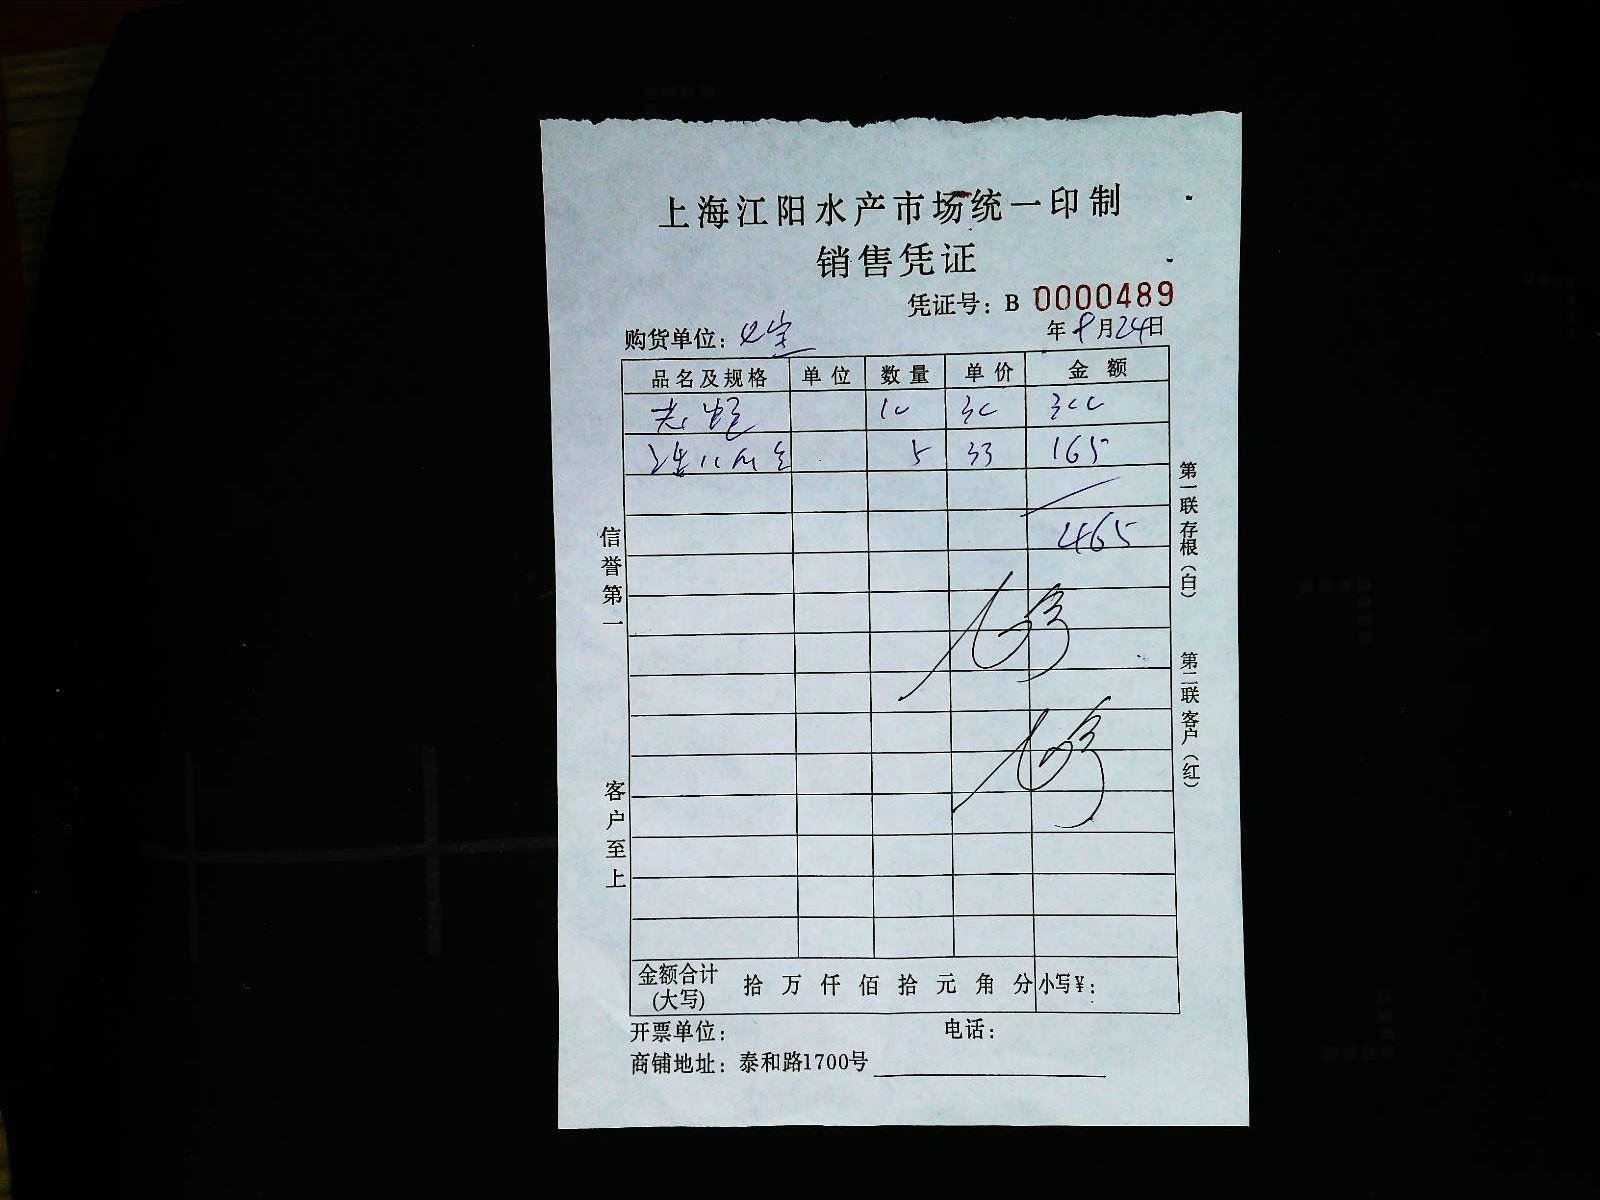 上海江阳水产市场统一印制
销售凭证
凭证号：B 0000489
购货单位：
年 8月24日
品名及规格 单位 数量 单价 金额
10 30 300
5 33 165
465
信誉第一
客户至上
第一联存根（白）
第二联客户（红）
金额合计(大写) 拾 万 仟 佰 拾 元 角 分 小写¥：
开票单位： 电话：
商铺地址：泰和路1700号